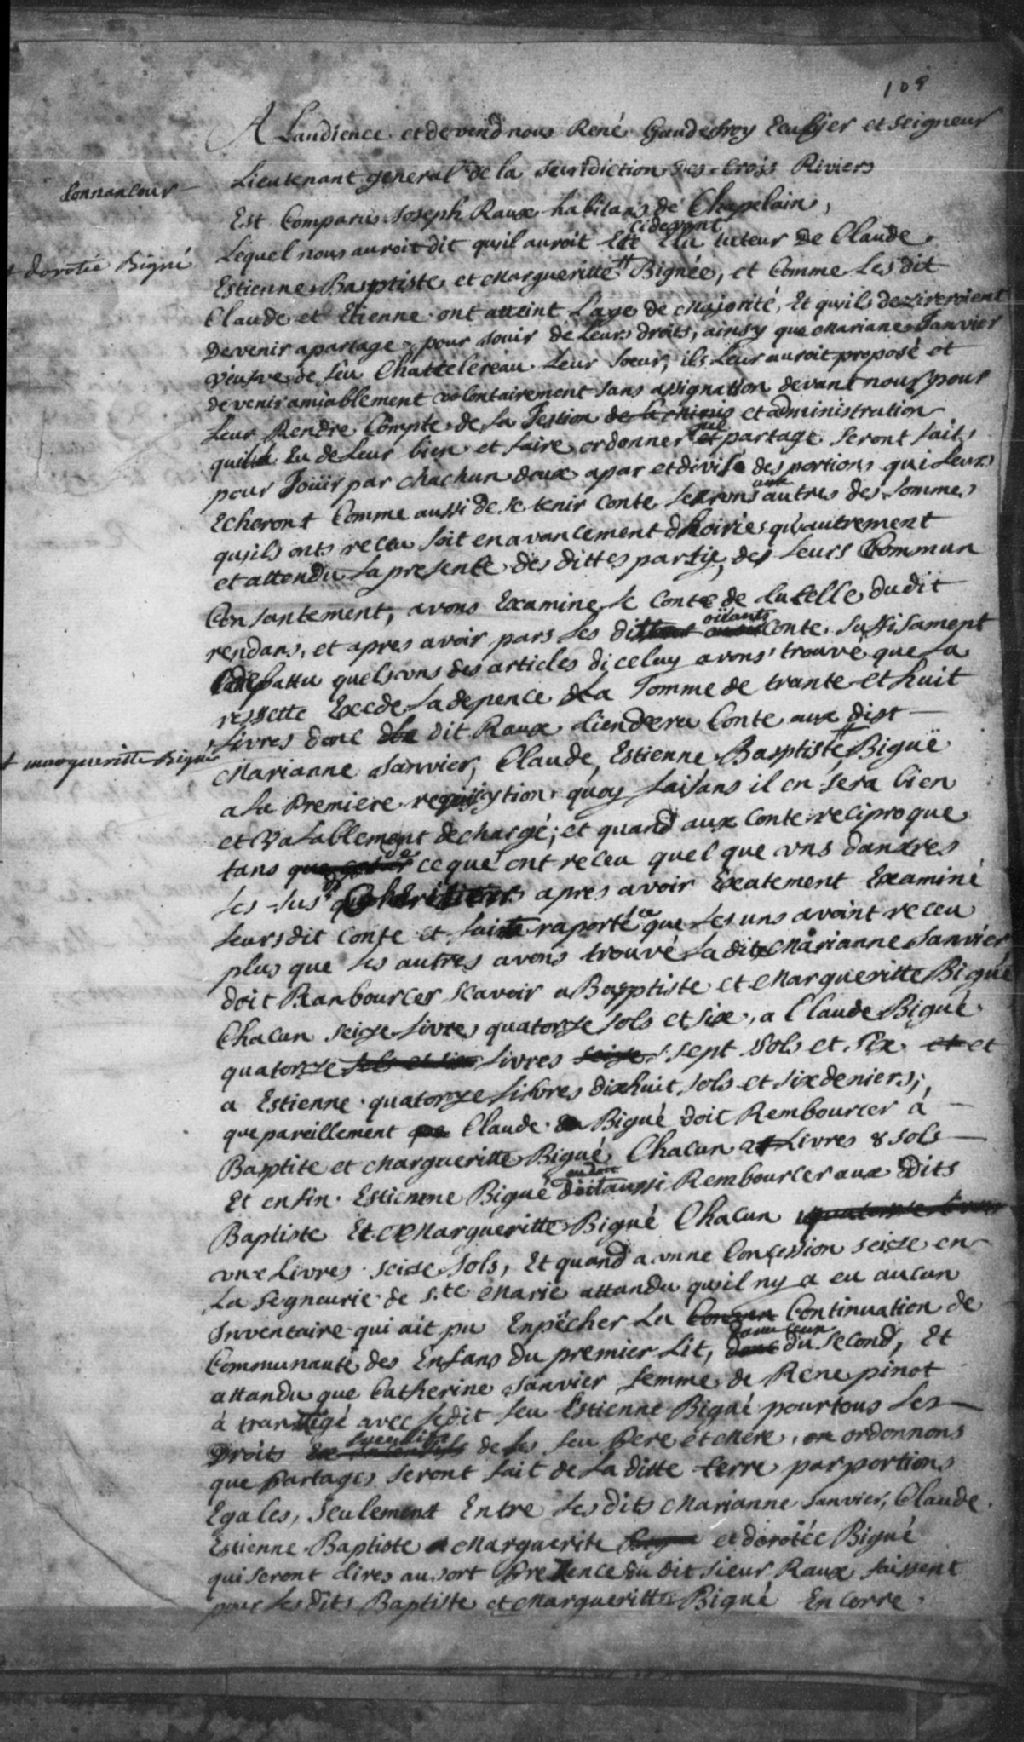 109
A Laudience et devend nous René Gaudefroy Ecuÿer et Seigneur
tonnancour
Lieutenant general de la Jeuridiction des trois Riviers
Est Comparu Joseph Raux habitans de Chapelain,
Lequel nous auroit dit quil auroit Esté cidevant Elu tuteur De Claude
+ dorotée Bigué
Estienne Baptiste et Margueritte # Bignée, et Comme Les dit
Claude et Etienne ont atteint Lage de Majorité, Et quils dezireroient
Devenir a partage pour Jouir de Leurs droits, ainsy que Mariane Janvier
veusve de feu Chattelereau Leur Soeur, ils Leur auroit proposé et
devenir amiablement volontairement sans assignation devant nous pour
Leur Rendre Compte de La Jestion et administration
quila Eu de Leur bien et faire ordonner que partage Seront fait
pour Joüir par chachun deux apar et divisé des portions qui Leur
Echeront Comme aussi de Se tenir Conte Les uns aux autres des Sommes
quils onts receu Soit en avancement dhoiries qu'autrement
et attendu La presente des dittes party, des Leurs Commun
Consantement, avons Examine Le Conte de tutelle dudit
rendans, et apres avoir pars Les dit oiiants Conte Suffisament
debattu quelsuns des articles diceluy avons trouve que La
ressette Excde La depence de La Somme de trante et huit
Livres donc dit Raux tiendera Conte aux dist
+ margueritte Bigué
Marianne Janvier, Claude, Estienne Baptiste # Bigué
a La Premiere requisytion quoy faisans il en Sera bien
et Valablement dechargé; et quand aux Conte reciproque
tans de ce que ont receu quelque uns dantres
Les Susdit Coheritiers apres avoir Exatement Examiné
Leursdit Conte et fait raporté ce que Les uns avoint receu
plus que Les autres avons trouvé La dite Marianne Janvier
doit Ranbourcer Scavoir a Baptiste et Margueritte Bigué
Chacun Seisse Livres quatorze Sols et Six, a Claude Bigué
quatorze Livres Sept Sols et Six et
a Estienne quatorze Livres dixhuit Sols et Six deniers;
que pareillement Claude Bigué doit Rembourcer à
Baptite et Margueritte Bigué Chacun Livres 8 Sols
Et enfin Estienne Bigué doit aussi Rembourcer aux Dits
Baptiste Et Margueritte Bigué Chacun
une Livres Seisse Sols, Et quand a unne Concession Seisse en
La Segneurie de Ste Marie attandu quil ny a eu aucun
Inventaire qui ait pu Enpêcher La Continuation de
Communauté des Enfans du premier Lit, avec ceux du Second, Et
attandu que Catherine Janvier femme de Rene pinot
à transigé avec Ledit feu Estienne Bigué pour tous Les
Droits de Ses feu Pere et Mere, ordonnons
que partages Seront fait de La ditte terre par portions
Egales, Seulement Entre Lesdits Marianne Janvier, Claude
Estienne Baptiste Marguerite et dorotée Bigué
qui Seront tires au Sort Presence du dit Sieur Raux faissent
pour Lesdits Baptiste et Margueritte Bigué Encorre